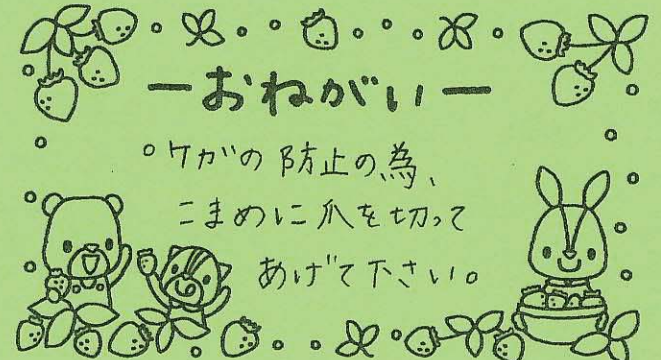 ーおねがいー
°ケガの防止の為、
こまめに爪を切って
あげて下さい。